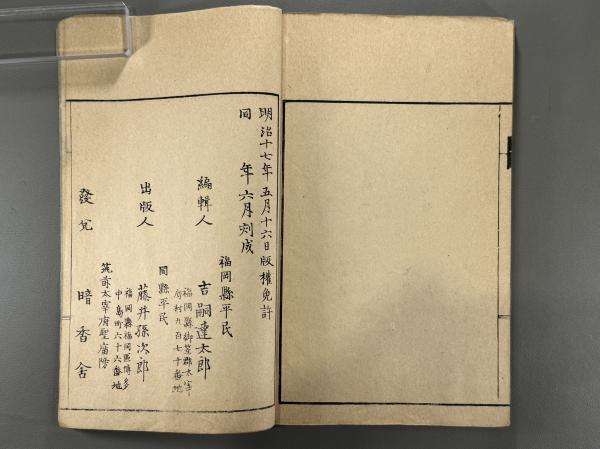 明治十七年五月十六日版權免許
同 年六月刻成
福岡縣平民
編輯人 吉嗣達太郎
福岡縣御笠郡太宰
府村九百七十番地
同縣平民
出版人 藤井孫次郎
福岡縣福岡區博多
中島町六十六番地
筑前太宰府聖廟傍
發兌 暗香舍